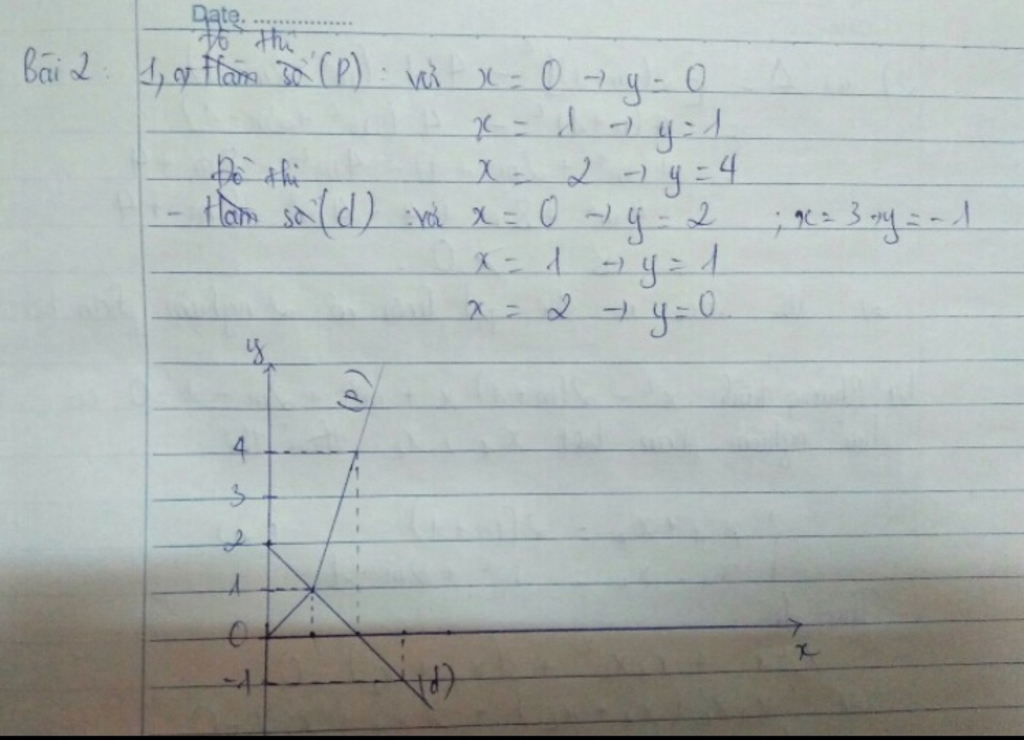 Date. ................
Đồ thị
Bài 2: 1, a, Hàm số (P): với x = 0 → y = 0
x = 1 → y = 1
x = 2 → y = 4
Đồ thị
- Hàm số (d) : với x = 0 → y = 2 ; x = 3 → y = -1
x = 1 → y = 1
x = 2 → y = 0
y
(P)
4
3
2
1
0
x
-1
(d)